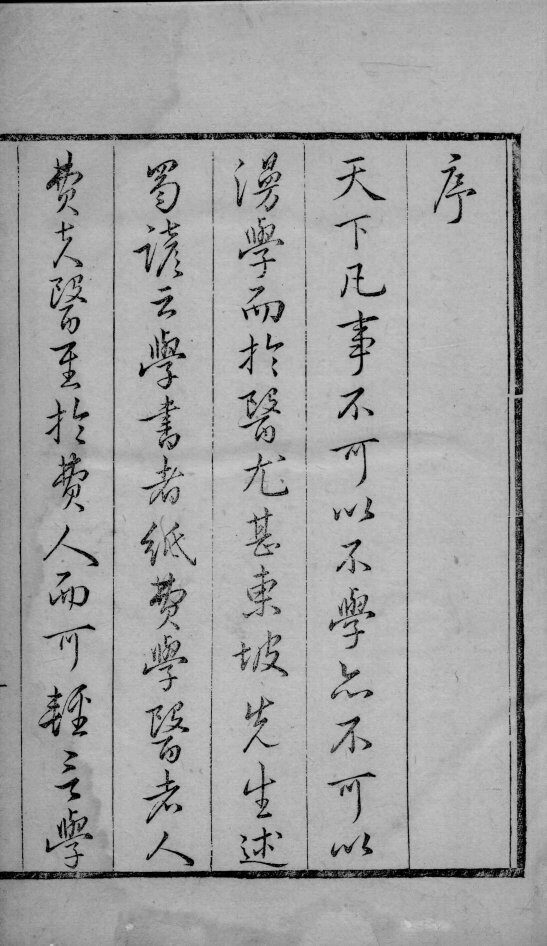 序
天下凡事不可以不學亦不可以
漫學而於醫尤甚東坡先生述
蜀諺云學書者紙費學醫者人
費夫醫至於費人而可輕言學